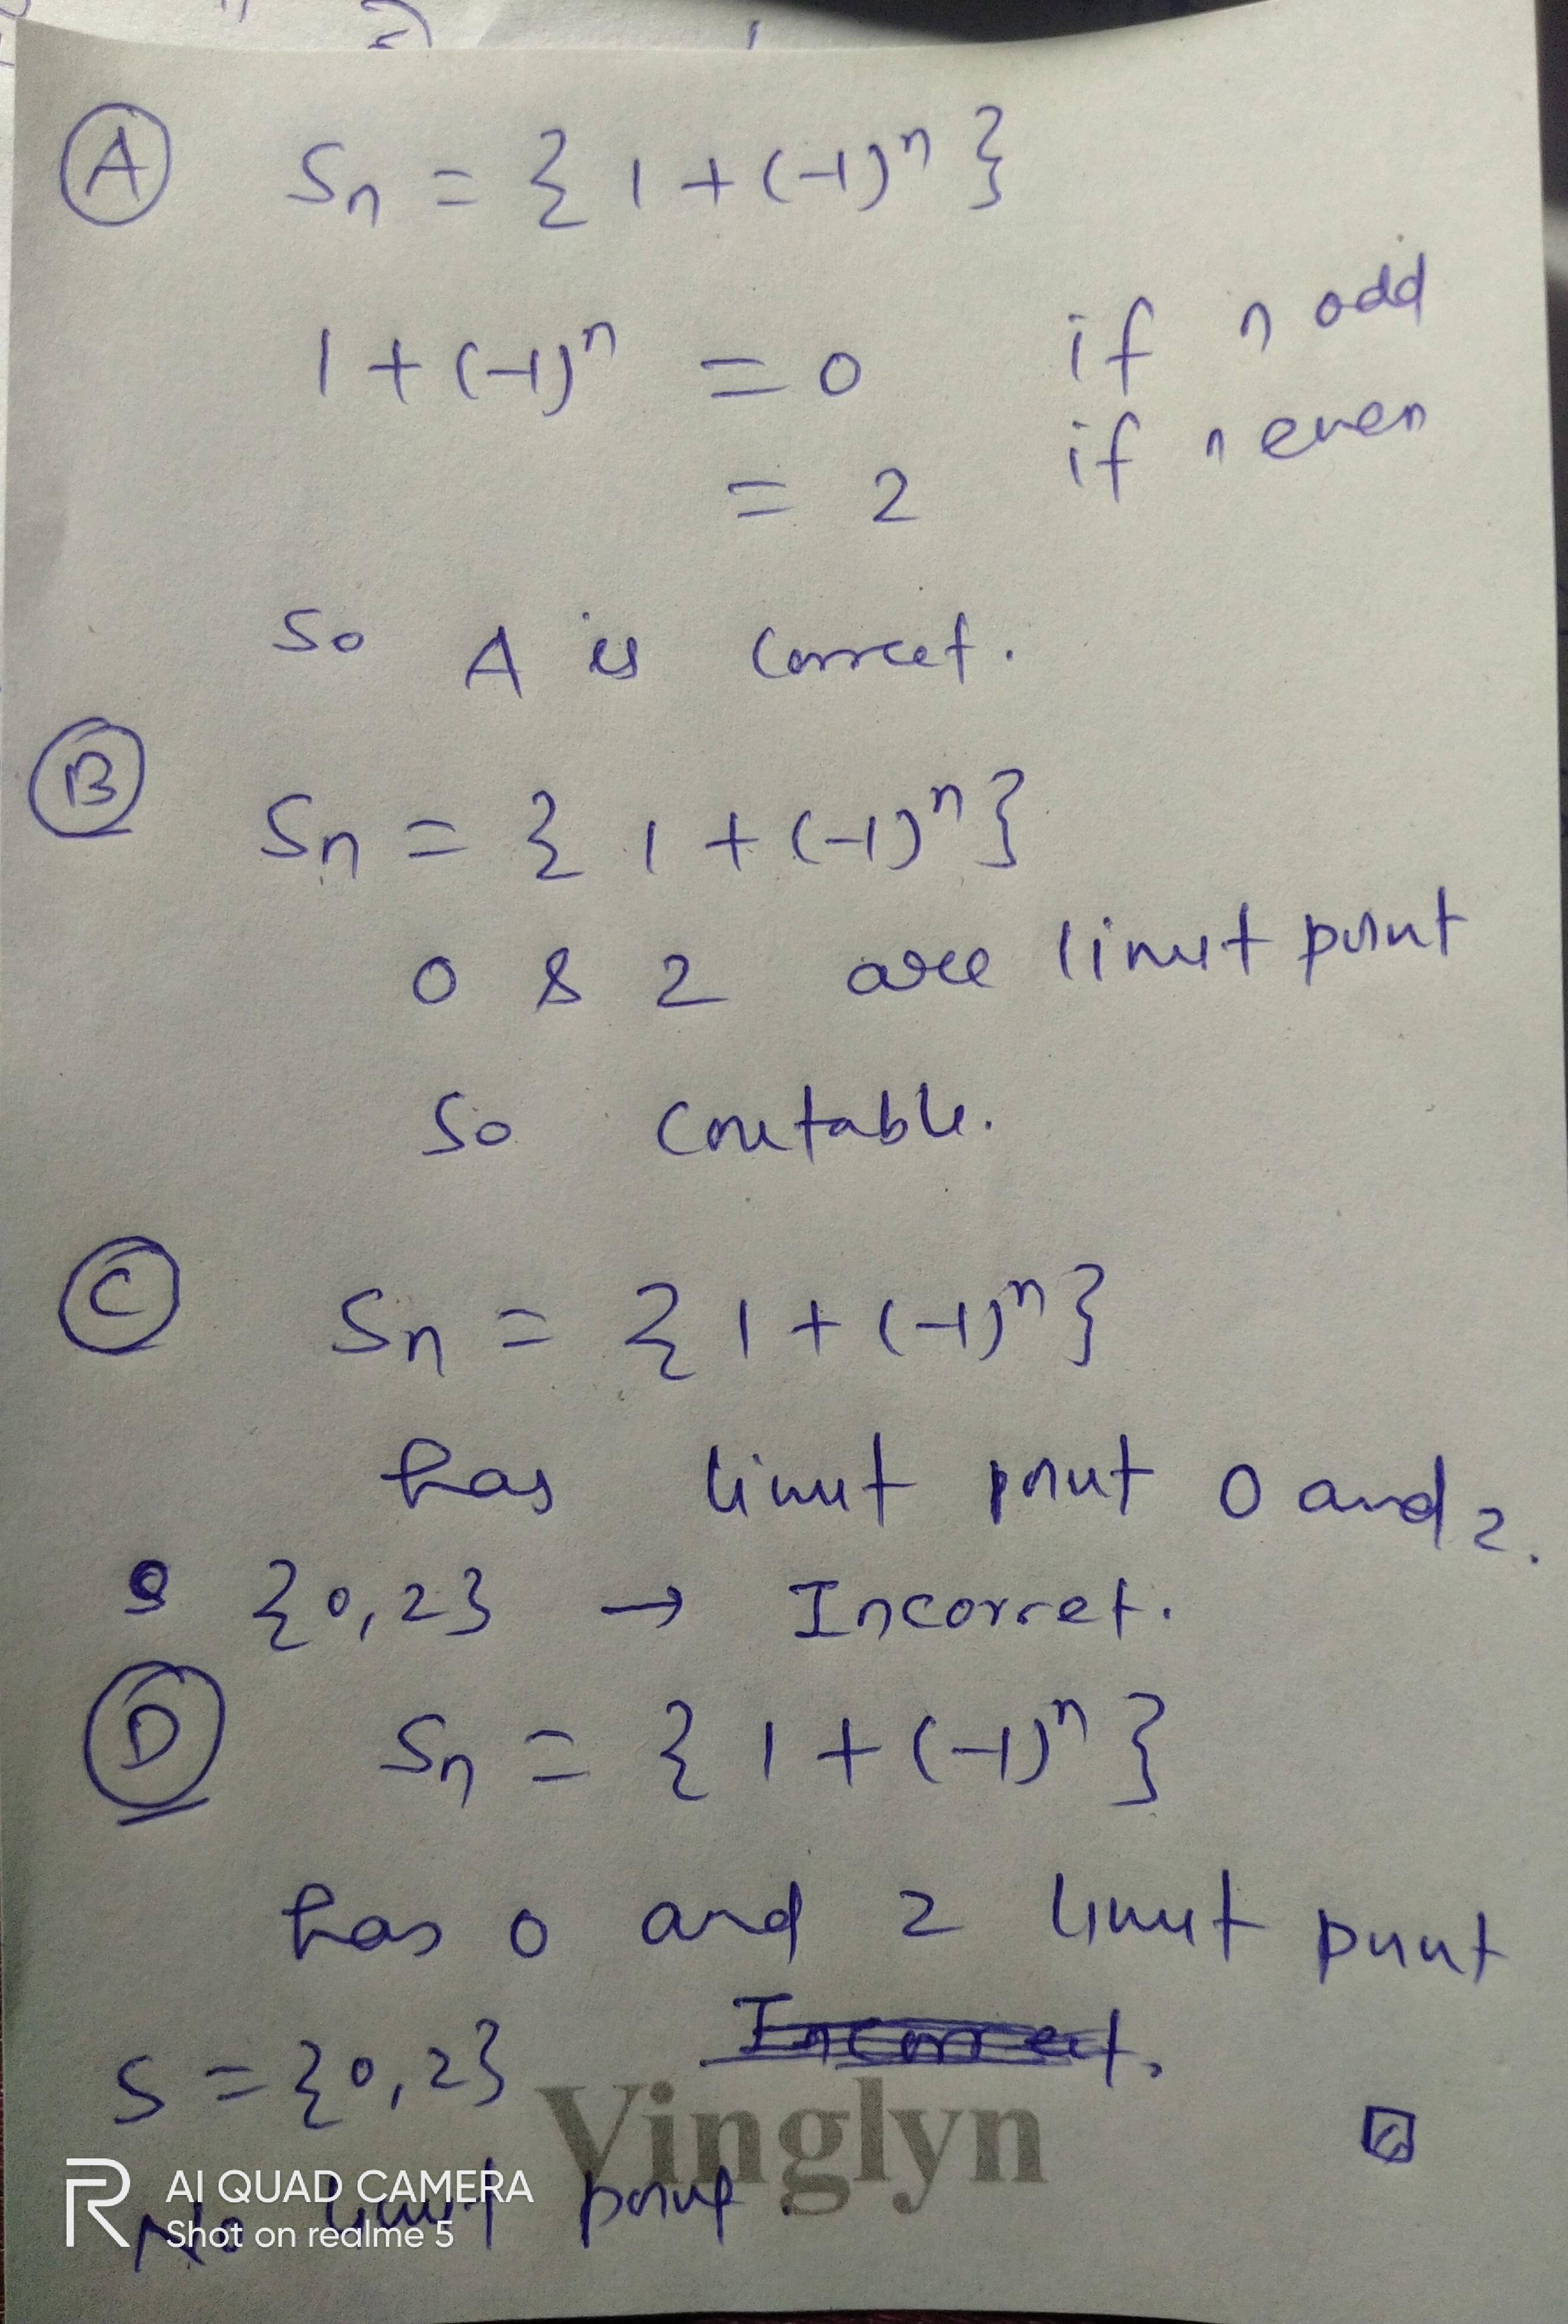 A Sn = { 1 + (-1)ⁿ }
1 + (-1)ⁿ = 0 if n odd
= 2 if n even
So A is correct.
B Sn = { 1 + (-1)ⁿ }
0 & 2 are limit point
So coutable.
C Sn = { 1 + (-1)ⁿ }
has limit point 0 and 2.
S {0,2} → Incorret.
D Sn = { 1 + (-1)ⁿ }
has 0 and 2 limit point
S = {0,2}
Vinglyn
No limit point.
R AI QUAD CAMERA
Shot on realme 5